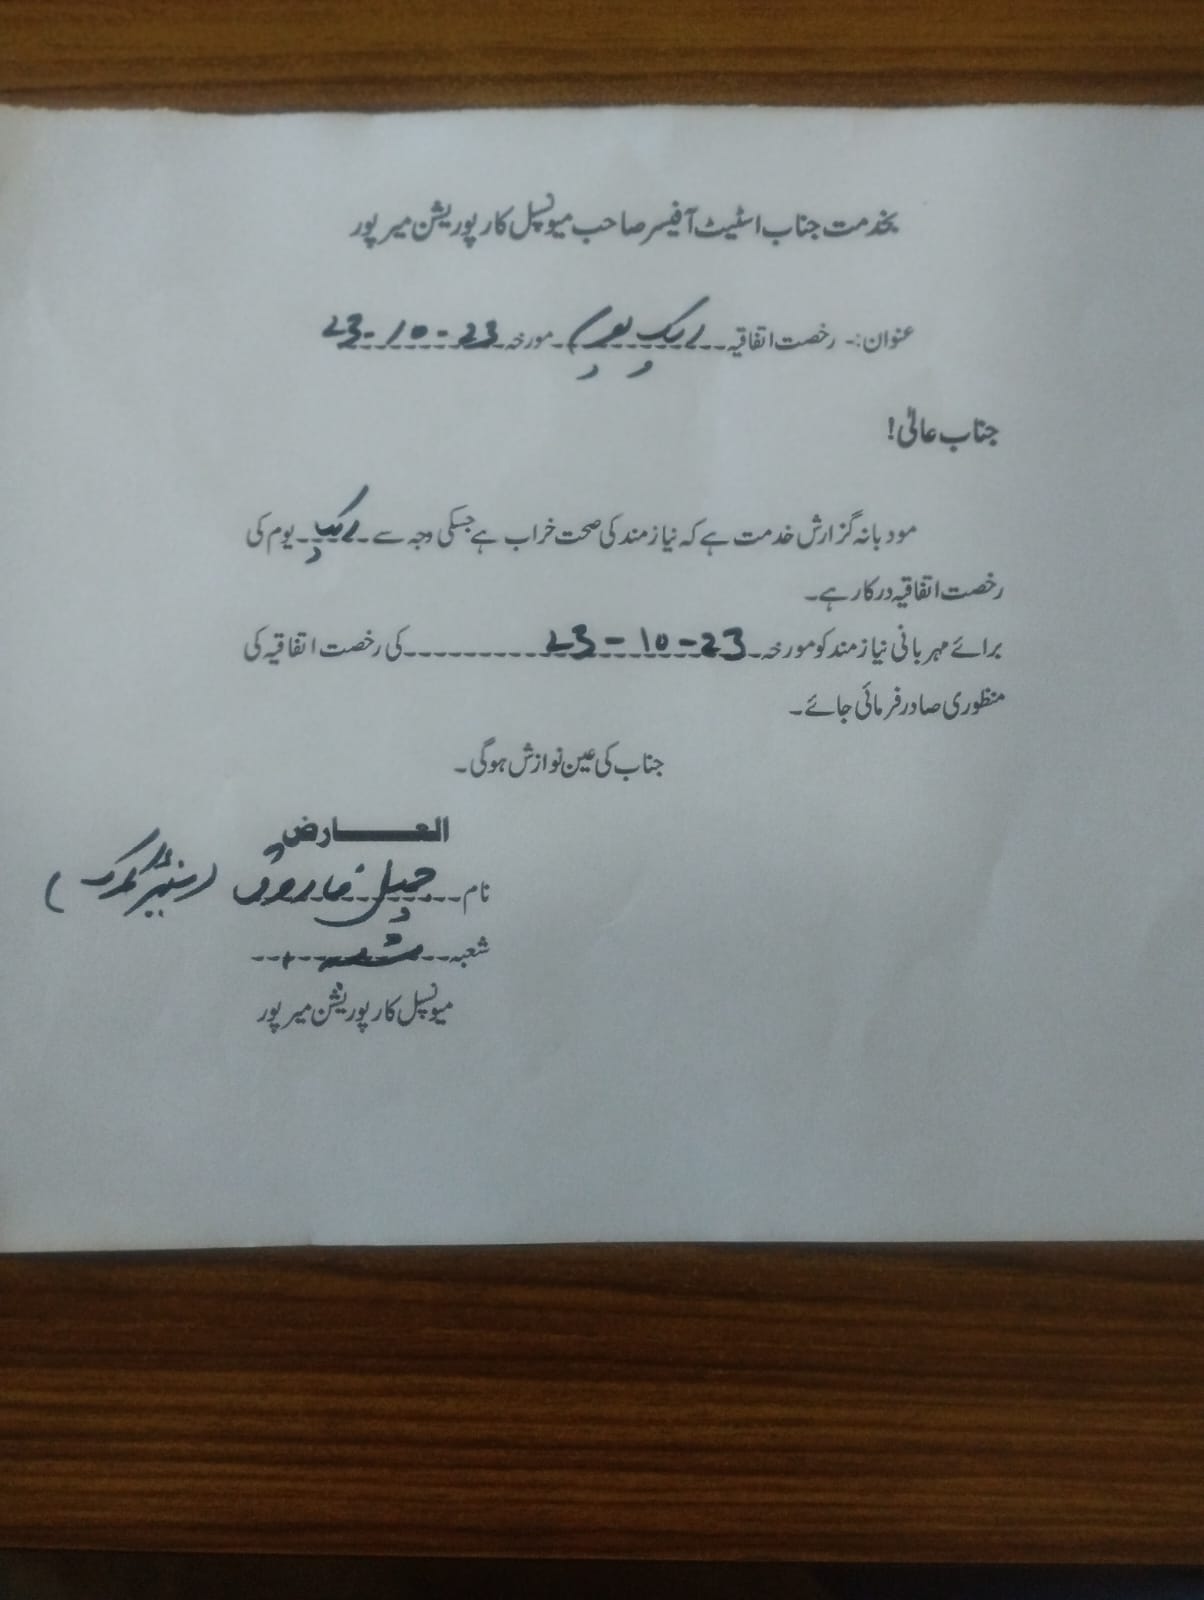 بخدمت جناب اسٹیٹ آفیسر صاحب میونسپل کارپوریشن میرپور
عنوان:- رخصت اتفاقیہ ایک یوم مورخہ 23-10-23
جناب عالی!
مودبانہ گزارش خدمت ہے کہ نیازمند کی صحت خراب ہے جسکی وجہ سے ایک یوم کی
رخصت اتفاقیہ درکار ہے۔
برائے مہربانی نیازمند کو مورخہ 23-10-23 کی رخصت اتفاقیہ کی
منظوری صادر فرمائی جائے۔
جناب کی عین نوازش ہوگی۔
العارض
نام جمیل فاروق (سنیئر کلرک)
شعبہ
میونسپل کارپوریشن میرپور